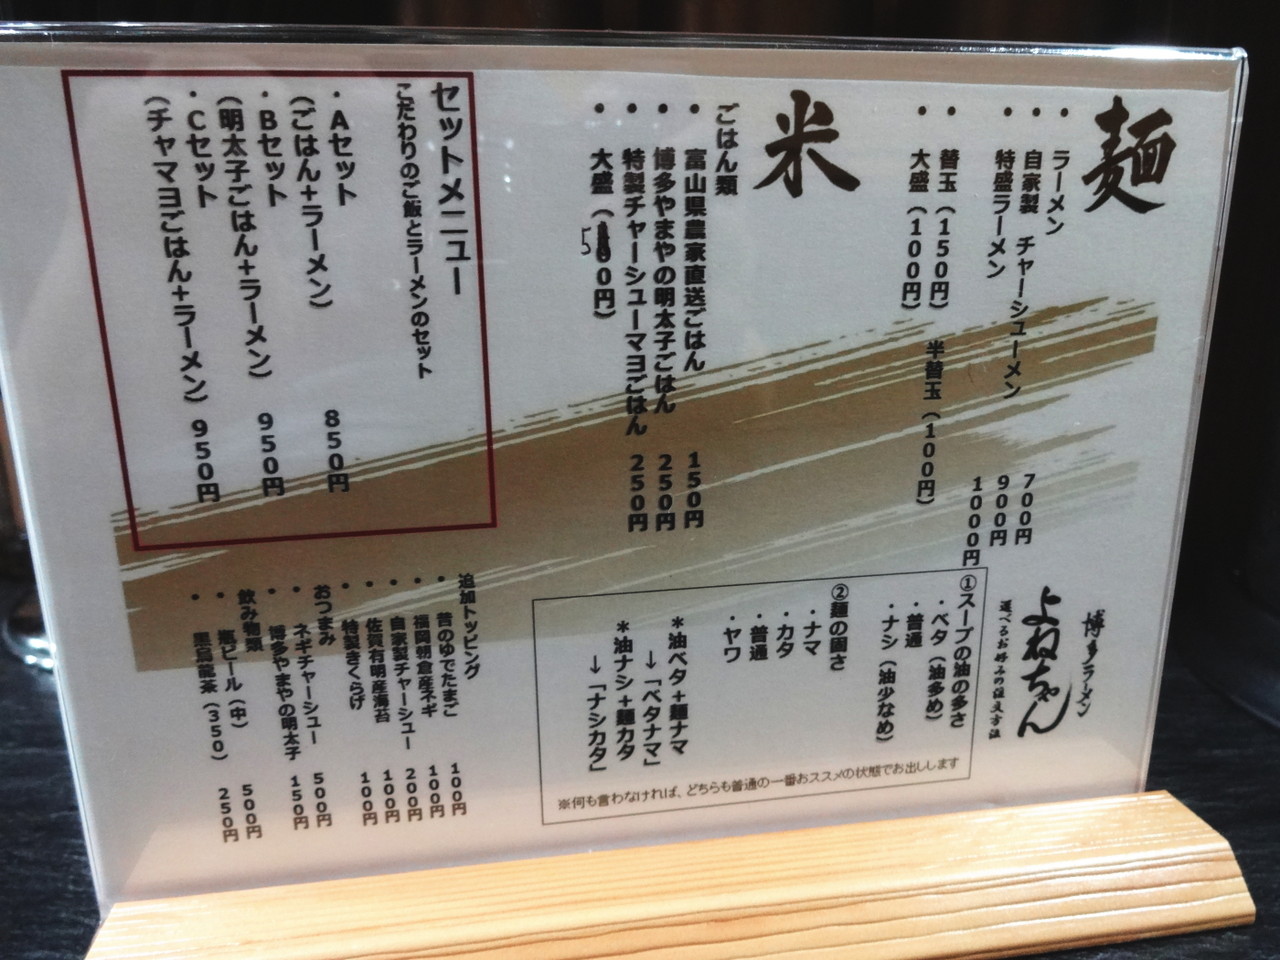 麺
・ラーメン 700円
・自家製 チャーシューメン 900円
・特盛ラーメン 1000円
・替玉（150円） 半替玉（100円）
・大盛（100円）
米
ごはん類
・富山県農家直送ごはん 150円
・博多やまやの明太子ごはん 250円
・特製チャーシューマヨごはん 250円
・大盛（50円）
セットメニュー
こだわりのご飯とラーメンのセット
・Aセット
（ごはん＋ラーメン） 850円
・Bセット
（明太子ごはん＋ラーメン） 950円
・Cセット
（チャマヨごはん＋ラーメン） 950円
博多ラーメン
よねちゃん
選べるお好みの注文方法
①スープの油の多さ
・ベタ（油多め）
・普通
・ナシ（油少なめ）
②麺の固さ
・ナマ
・カタ
・普通
・ヤワ
＊油ベタ＋麺ナマ
→「ベタナマ」
＊油ナシ＋麺カタ
→「ナシカタ」
※何も言わなければ、どちらも普通の一番おススメの状態でお出しします
追加トッピング
・昔のゆでたまご 100円
・福岡朝倉産ネギ 100円
・自家製チャーシュー 200円
・佐賀有明産海苔 100円
・特製きくらげ 100円
おつまみ
・ネギチャーシュー 500円
・博多やまやの明太子 150円
飲み物類
・瓶ビール（中） 500円
・黒烏龍茶（350） 250円